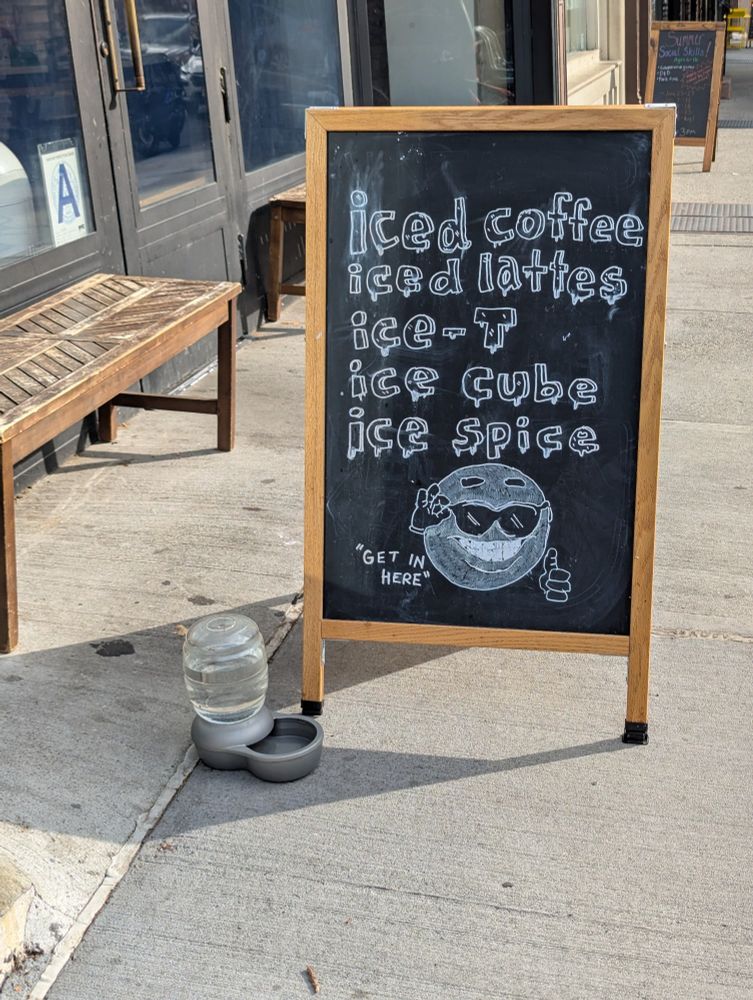 A
Summer
Social Skills!
iced coffee
iced lattes
ice-T
ice cube
ice spice
"GET IN
HERE"